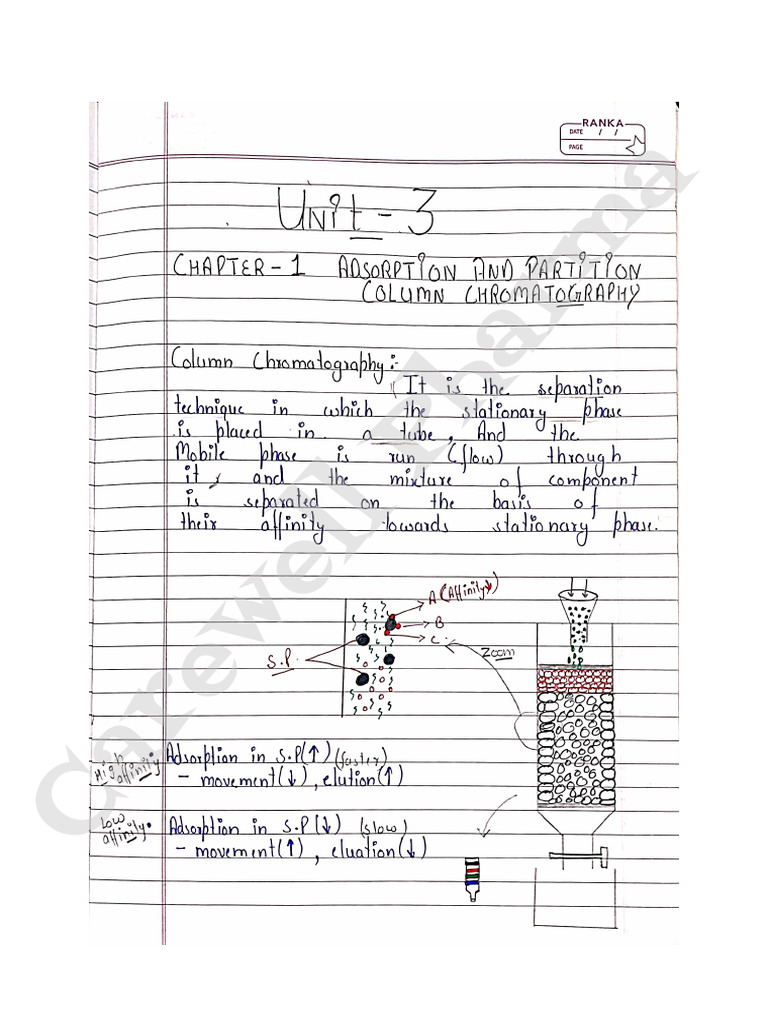 RANKA
DATE / /
PAGE
Unit - 3
CHAPTER - 1 ADSORPTION AND PARTITION
COLUMN CHROMATOGRAPHY
Column Chromatography :-
It is the separation
technique in which the stationary phase
is placed in a tube, And the
Mobile phase is run (flow) through
it, and the mixture of component
is separated on the basis of
their affinity towards stationary phase.
A (Affinity↓)
B
C
S.P.
Zoom
High affinity
Adsorption in S.P(↑) (faster)
- movement(↓), elution(↑)
Low affinity.
Adsorption in S.P(↓) (slow)
- movement(↑), eluation(↓)
Carewell Pharma